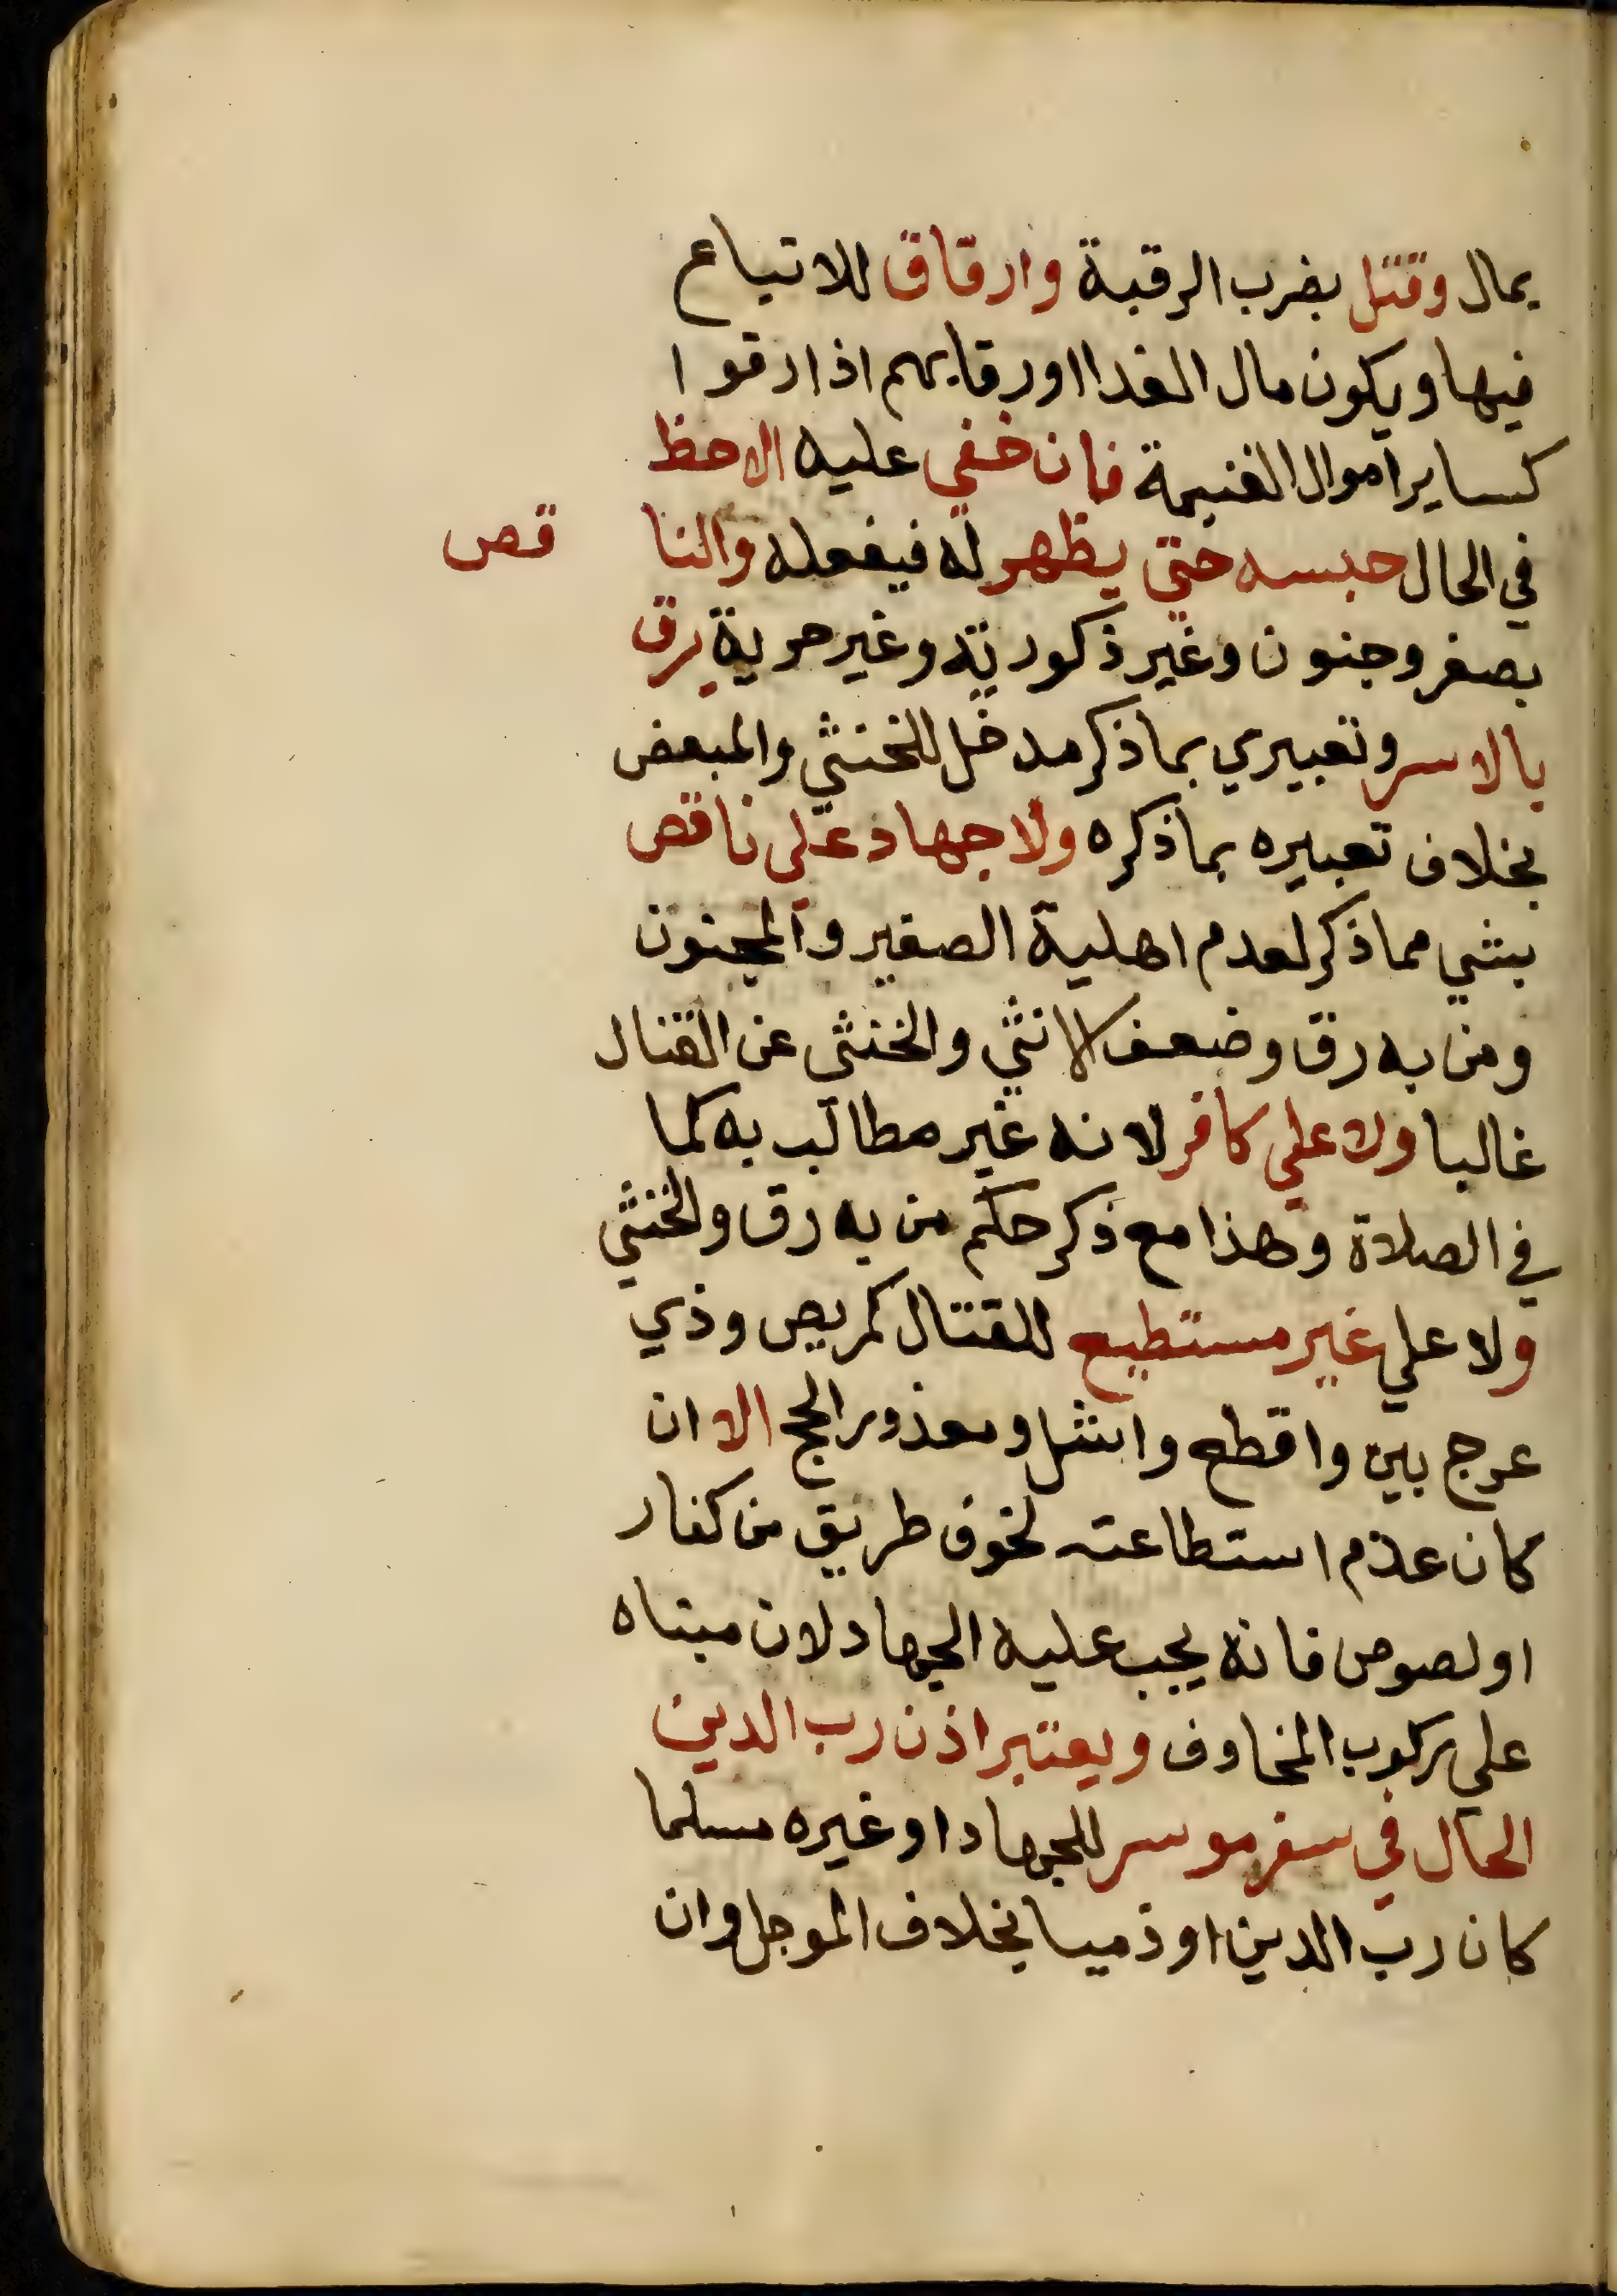 بمال وقتل بضرب الرقبة وارقاق للاتباع
فيها ويكون مال الفدا اورقابهم اذا رقوا
كساير اموال الغنيمة فان خفي عليه الاحظ
في الحال حبسه حتي يظهر له فيفعله والنا قص
بصغر وجنون وغير ذكورته وغير حرية يرق
بالاسر وتعبيري بما ذكر مدخل للخنثي والمبعض
بخلاف تعبيره بما ذكره ولا جهاد علي ناقص
بشي مما ذكر لعدم اهلية الصغير والمجنون
ومن به رق وضعف الانثي والخنثي عن القتال
غالبا ولا علي كافر لانه غير مطالب به كما
في الصلاة وهذا مع ذكر حكم من به رق والخنثي
ولا علي غير مستطيع للقتال كمريض وذي
عرج بين واقطع واشل ومعذور الحج الا ان
كان عدم استطاعته لخوف طريق من كفار
او لصوص فانه يجب عليه الجهاد لان مبناه
علي ركوب المخاوف ويعتبر اذن رب الدين
الحال في سفر موسر للجهاد او غيره مسلما
كان رب الدين او ذميا بخلاف الموجل وان